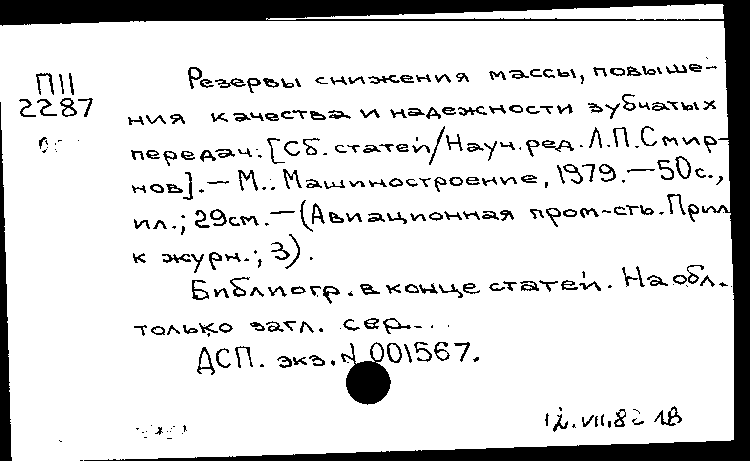 ПII
2287
Резервы снижения массы, повыше-
ния качества и надежности зубчатых
передач: [Сб. статей/Науч. ред. Л.П. Смир-
нов]. — М.: Машиностроение, 1979. — 50с.,
ил.; 29см. — (Авиационная пром-сть. Прил.
к журн.; 3).
Библиогр. в конце статей. На обл.
только загл. сер...
ДСП. экз. N 001567.
12.VII.82 1В